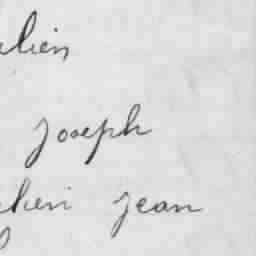 lien
Joseph
lien Jean